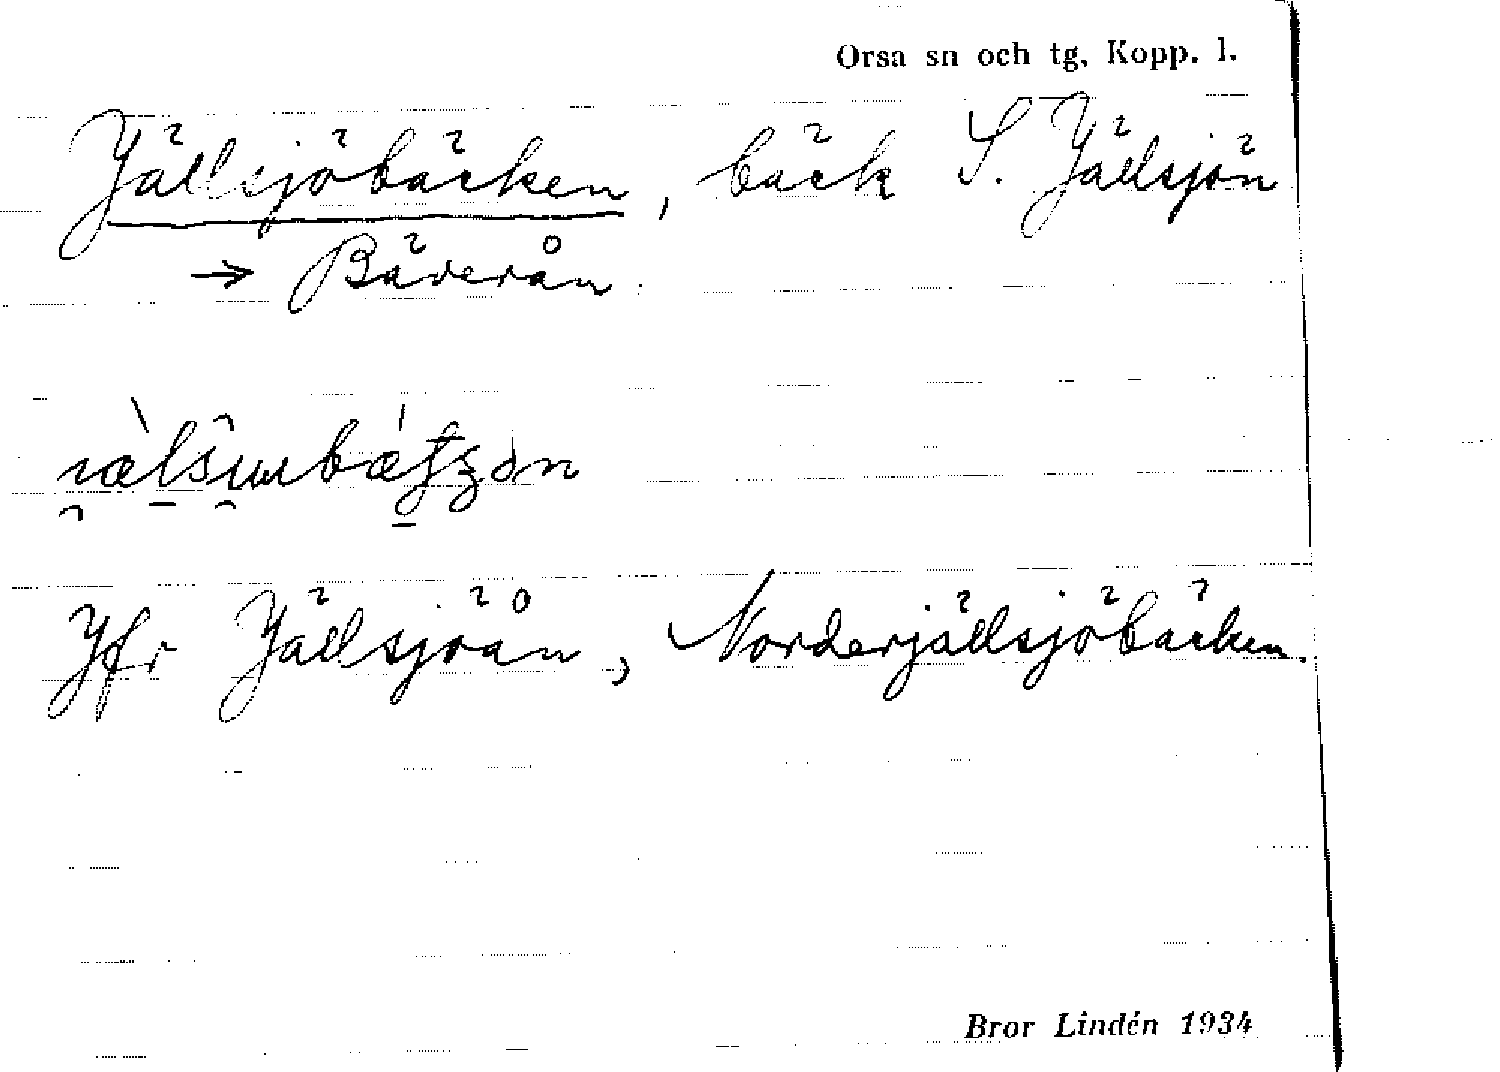 Orsa sn och tg, Kopp. l.
Jällsjöbäcken, bäck S. Jällsjön
→ Bäverån.
Jfr Jällsjöån, Norderjällsjöbäcken.
Bror Lindén 1934